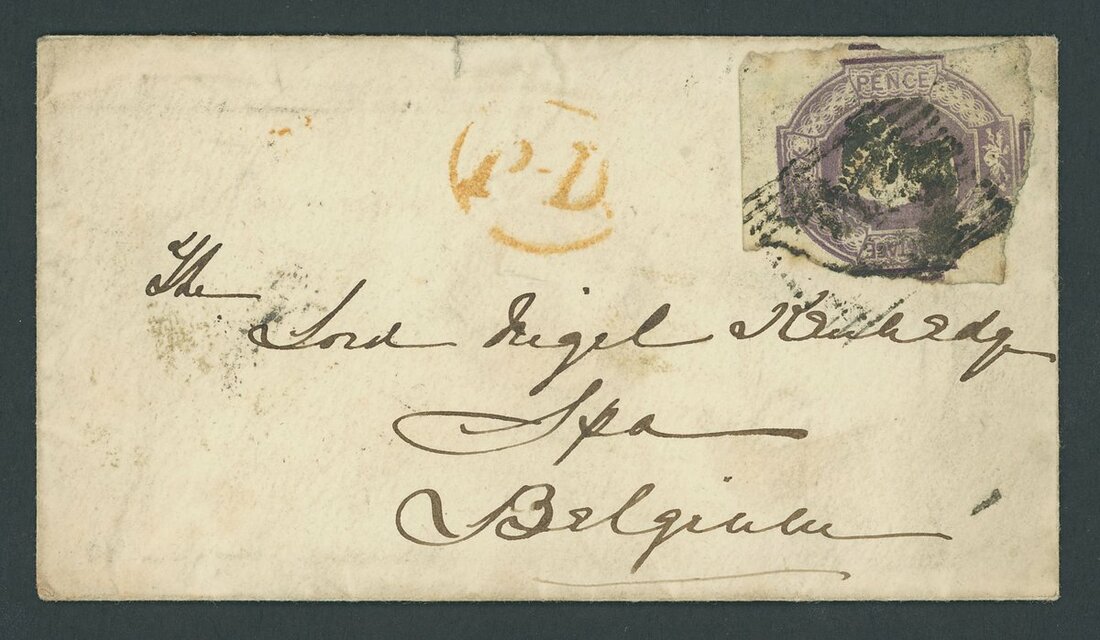 PENCE
P.D.
The
Lord Nigel Kennedy
Spa
Belgium